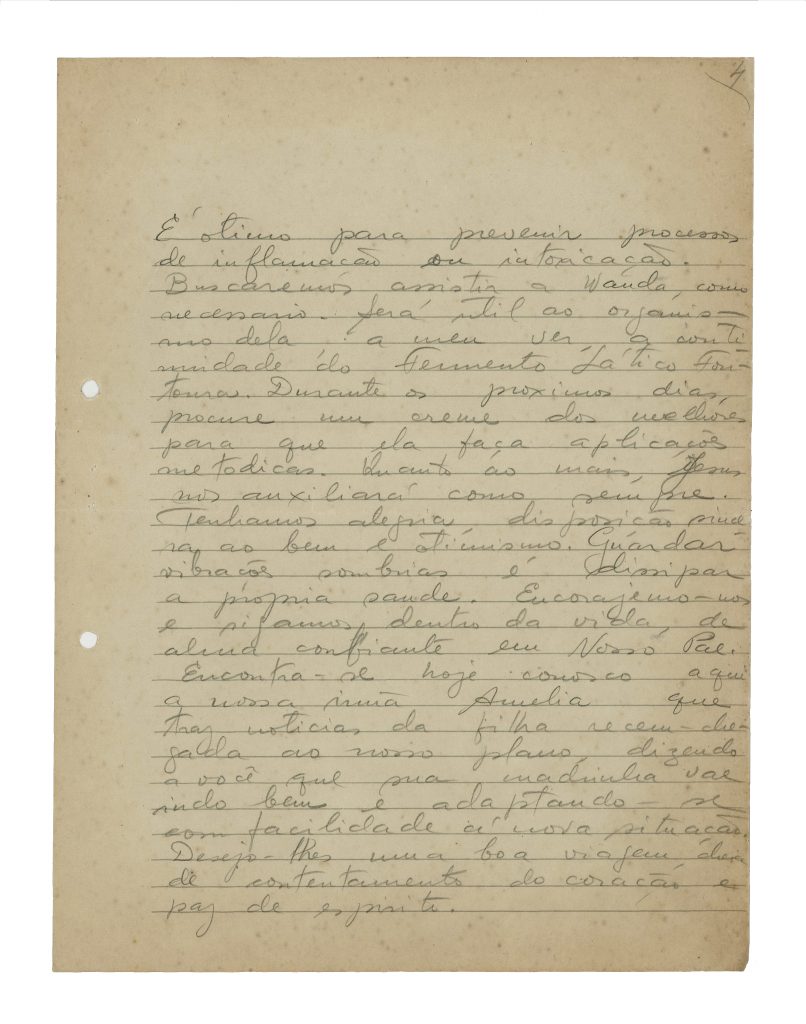 4
É ótimo para prevenir processos
de inflamação ou intoxicação.
Buscaremos assistir a Wanda, como
necessario. Será útil ao organis-
mo dela, a meu ver, a conti-
nuidade do Fermento Lático Fon-
toura. Durante os proximos dias,
procure um creme dos melhóres
para que ela faça aplicações
metodicas. Quanto ao mais, Jesus
nos auxiliará como sempre.
Tenhamos alegria, disposição since
ra ao bem e otimismo. Guardar
vibrações sombrias é dissipar
a própria saude. Encorajemo-nos
e sigamos, dentro da vida, de
alma confiante em Nosso Pae.
Encontra-se hoje conosco aqui
a nossa irmã Amelia que
traz noticias da filha recem-che-
gada ao nosso plano, dizendo
a você que sua madrinha vae
indo bem e adaptando-se
com facilidade á nova situação.
Desejo-lhes uma boa viagem, cheia
de contentamento do coração e
paz de espirito.